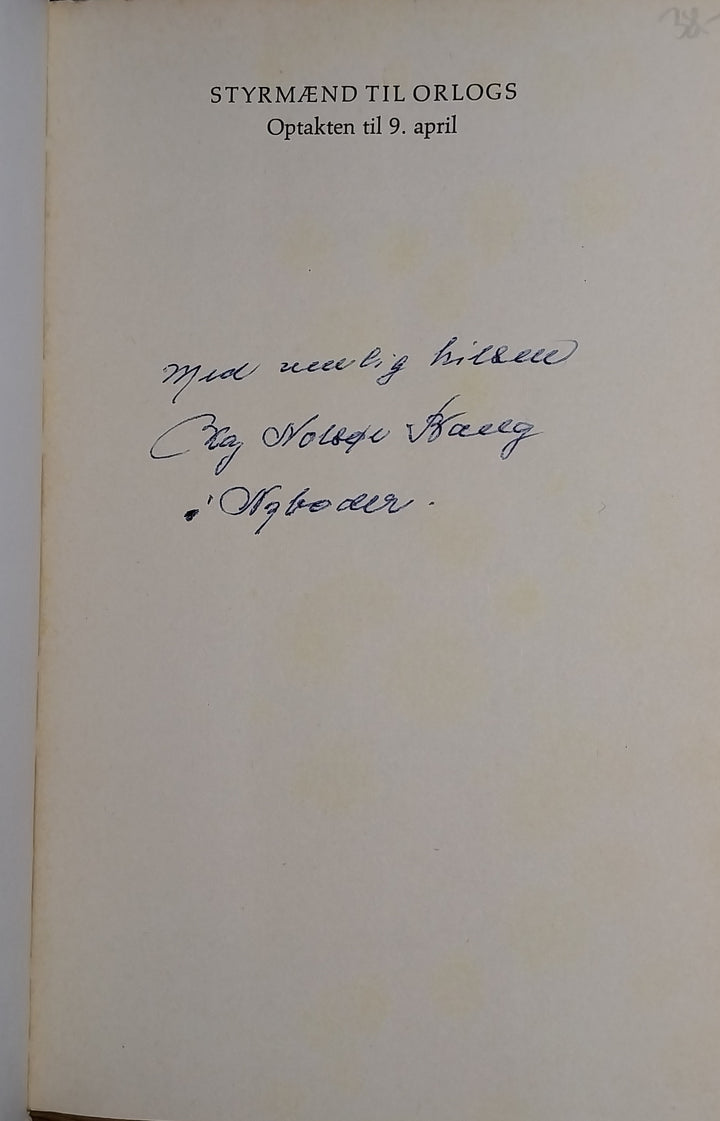 38.-
STYRMÆND TIL ORLOGS
Optakten til 9. april
Med venlig hilsen
Kaj Nolsøe Bang
i Nyboder.